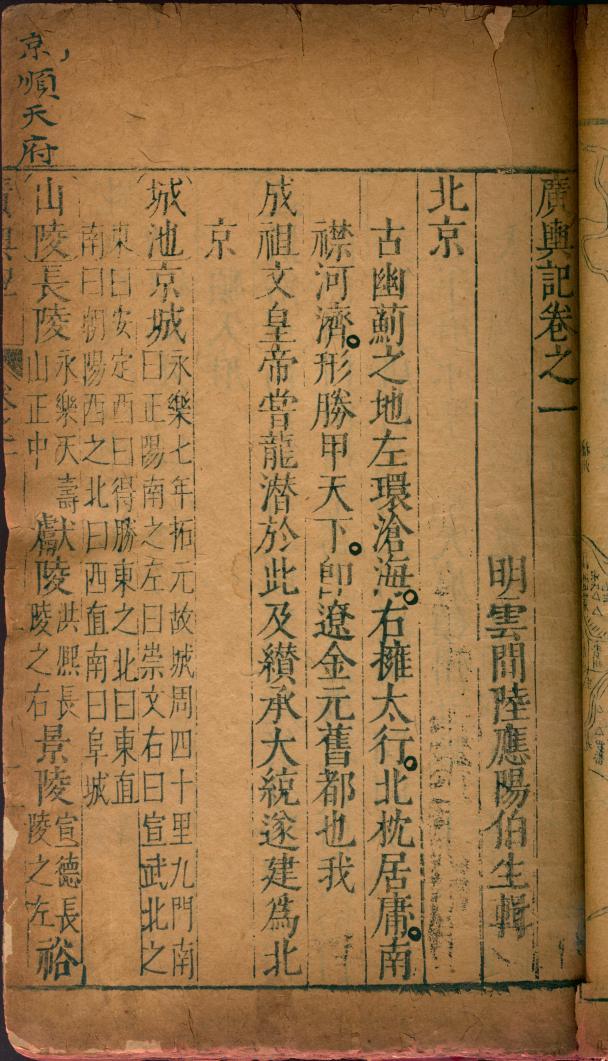 廣輿記卷之一
明雲間陸應陽伯生輯
北京
古幽薊之地左環滄海。右擁太行。北枕居庸。南
襟河濟。形勝甲天下。卽遼金元舊都也我
成祖文皇帝嘗龍潛於此及纘承大統遂建爲北
京
城池京城永樂七年拓元故城周四十里九門南
曰正陽南之左曰崇文右曰宣武北之
東曰安定西曰得勝東之北曰東直
南曰朝陽西之北曰西直南曰阜城
山陵長陵永樂天壽
山正中獻陵洪熙長
陵之右景陵宣德長
陵之左裕
京順天府